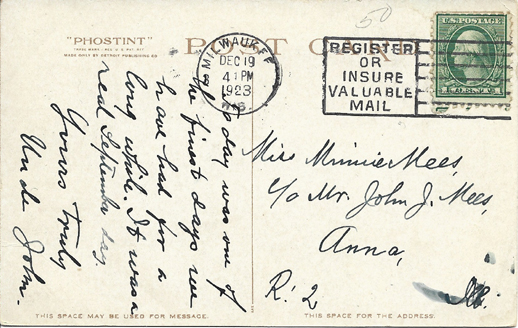 50
"PHOSTINT"
MADE ONLY BY DETROIT PUBLISHING CO
POST
MILWAUKEE
DEC 19
4 PM
1923
WIS
REGISTER
OR
INSURE
VALUABLE
MAIL
U.S. POSTAGE
day was one of
the finest days we
have had for a
long while. It was a
real September day.
Yours truly
Uncle John.
Miss Minnie Mees,
c/o Mr. John J. Mees,
Anna,
R. 2 Ill.
THIS SPACE MAY BE USED FOR MESSAGE.
THIS SPACE FOR THE ADDRESS.